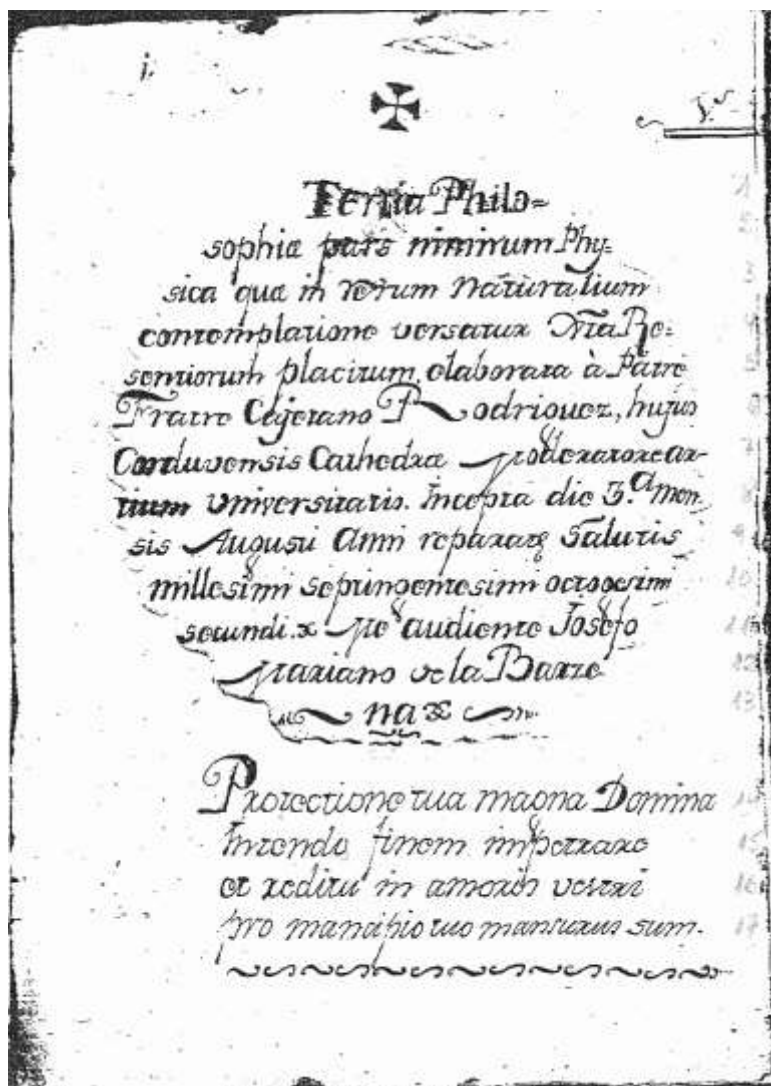 j.
Tertia Philo=
sophiæ pars nimirum Phy=
sica quæ in rerum Naturalium
contemplatione versatur Re=
sentiorum placitum, elaborata à Patre
Fratre Cajetano Rodriguez, hujus
Corduvensis Cathedræ Moderatore ar-
tium Universitatis. Incepta die 3.a men-
sis Augusti Anni reparatę Salutis
millesimi septingentesimi octogesimi
secundi. Me audiente Josefo
Mariano de la Barze
na
Protectione tua magna Domina
Intendo finem impetrare
et reditu in amoris vestri
pro mancipio tuo mansurus sum.
1
2
3
4
5
6
7
8
9
10
11
12
13
14
15
16
17